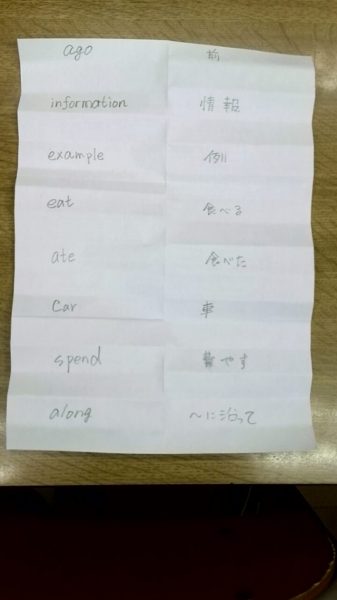 ago 前
information 情報
example 例
eat 食べる
ate 食べた
car 車
spend 費やす
along ～に沿って